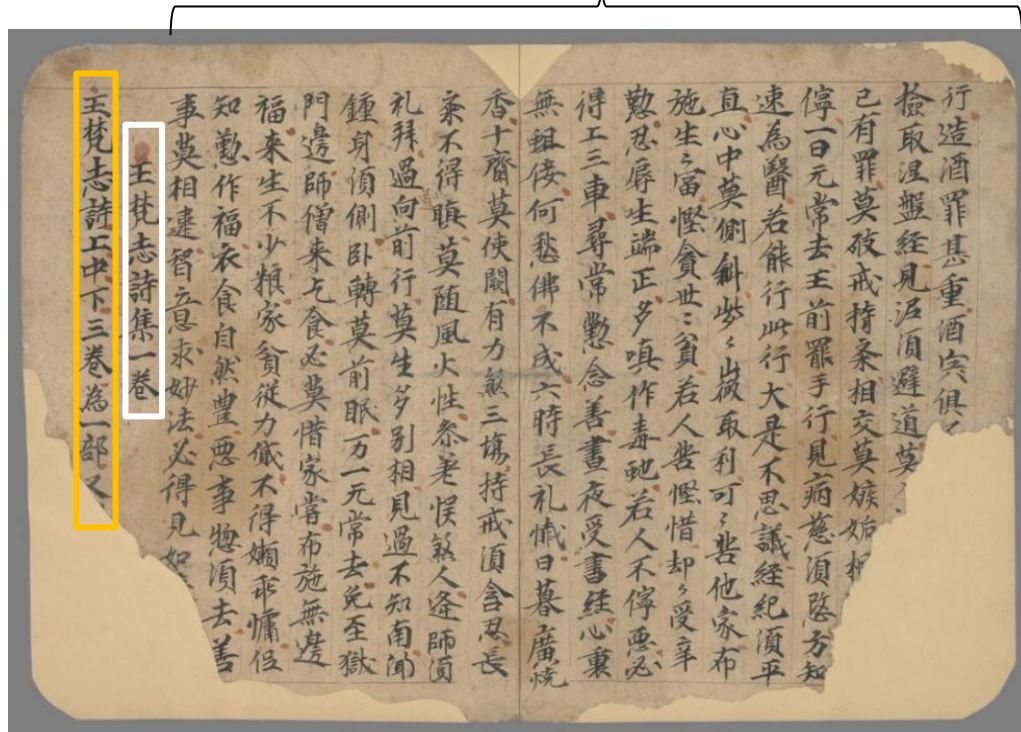 行造酒罪甚重酒宍俱
撿取涅盤經見泥須避道莫
已有罪莫破戒持齋相交莫嫉妬相
儜一日元常去王前罷手行見病慈須愍方知
速為醫若能行此行大是不思議經紀須平
直心中莫側斜些々微取利可々苦他家布
施生々富慳貪世々貧若人苦慳惜却々受辛
懃忍辱生端正多嗔作毒虵若人不儜惡必
得工三車尋常懃念善晝夜受書經心裏
無蛆佞何愁佛不成六時長礼懺日暮廣燒
香十齋莫使闕有力煞三塲持戒須含忍長
齋不得嗔莫随風火性叅差悮煞人逢師須
礼拜過道向前行莫生多別相見過不知南聞
鍾身須側卧轉莫前眠万一元常去免至獄
門邊師僧来乞食必莫惜家嘗布施無邊
福来生不少粮家貧從力貸不得嬾乖慵但
知懃作福衣食自然豊惡事惣須去善
事莫相違智意求妙法必得見如
王梵志詩集一卷
王梵志詩上中下三卷為一部又